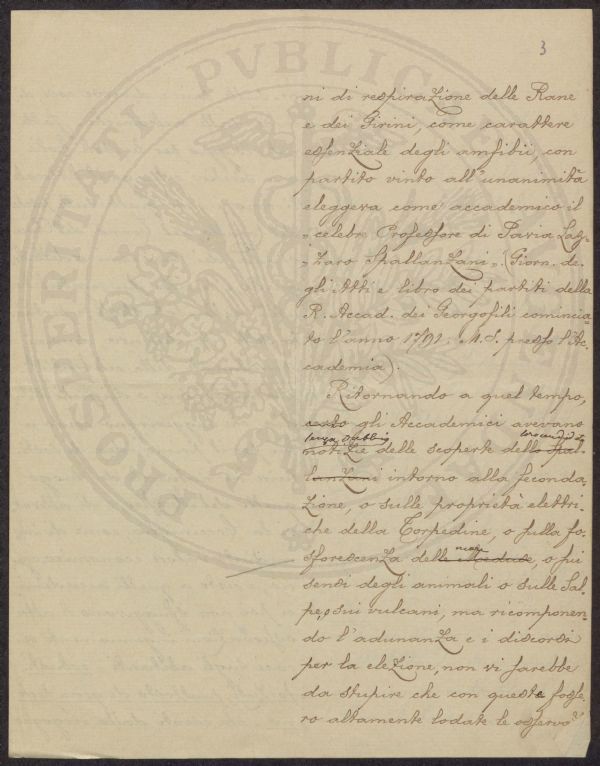 3
ni di respirazione delle Rane
e dei Girini, come carattere
essenziale degli amfibii, con
partito vinto all'unanimità
eleggeva come accademico il
"celebre Professore di Pavia Laz-
-zaro Spallanzani". (Giorn. de-
gli Atti e libro dei partiti della
R. Accad. dei Georgofili comincia-
to l'anno 1791; M.S. presso l'Ac-
cademia).
Ritornando a quel tempo,
certo gli Accademici avevano
senza dubbio
notizie delle scoperte dello Spal-
lanzani intorno alla feconda-
zione, o sulle proprietà elettri-
che della Torpedine, o sulla fo-
sforescenza delle Meduse, o sui
mare
sensi degli animali o sulle Sal-
pe, o sui vulcani, ma ricomponen-
do l'adunanza e i discorsi
per la elezione, non vi sarebbe
da stupire che con queste fosse-
ro altamente lodate le osserva-
PROSPERITATI PVBLICAE